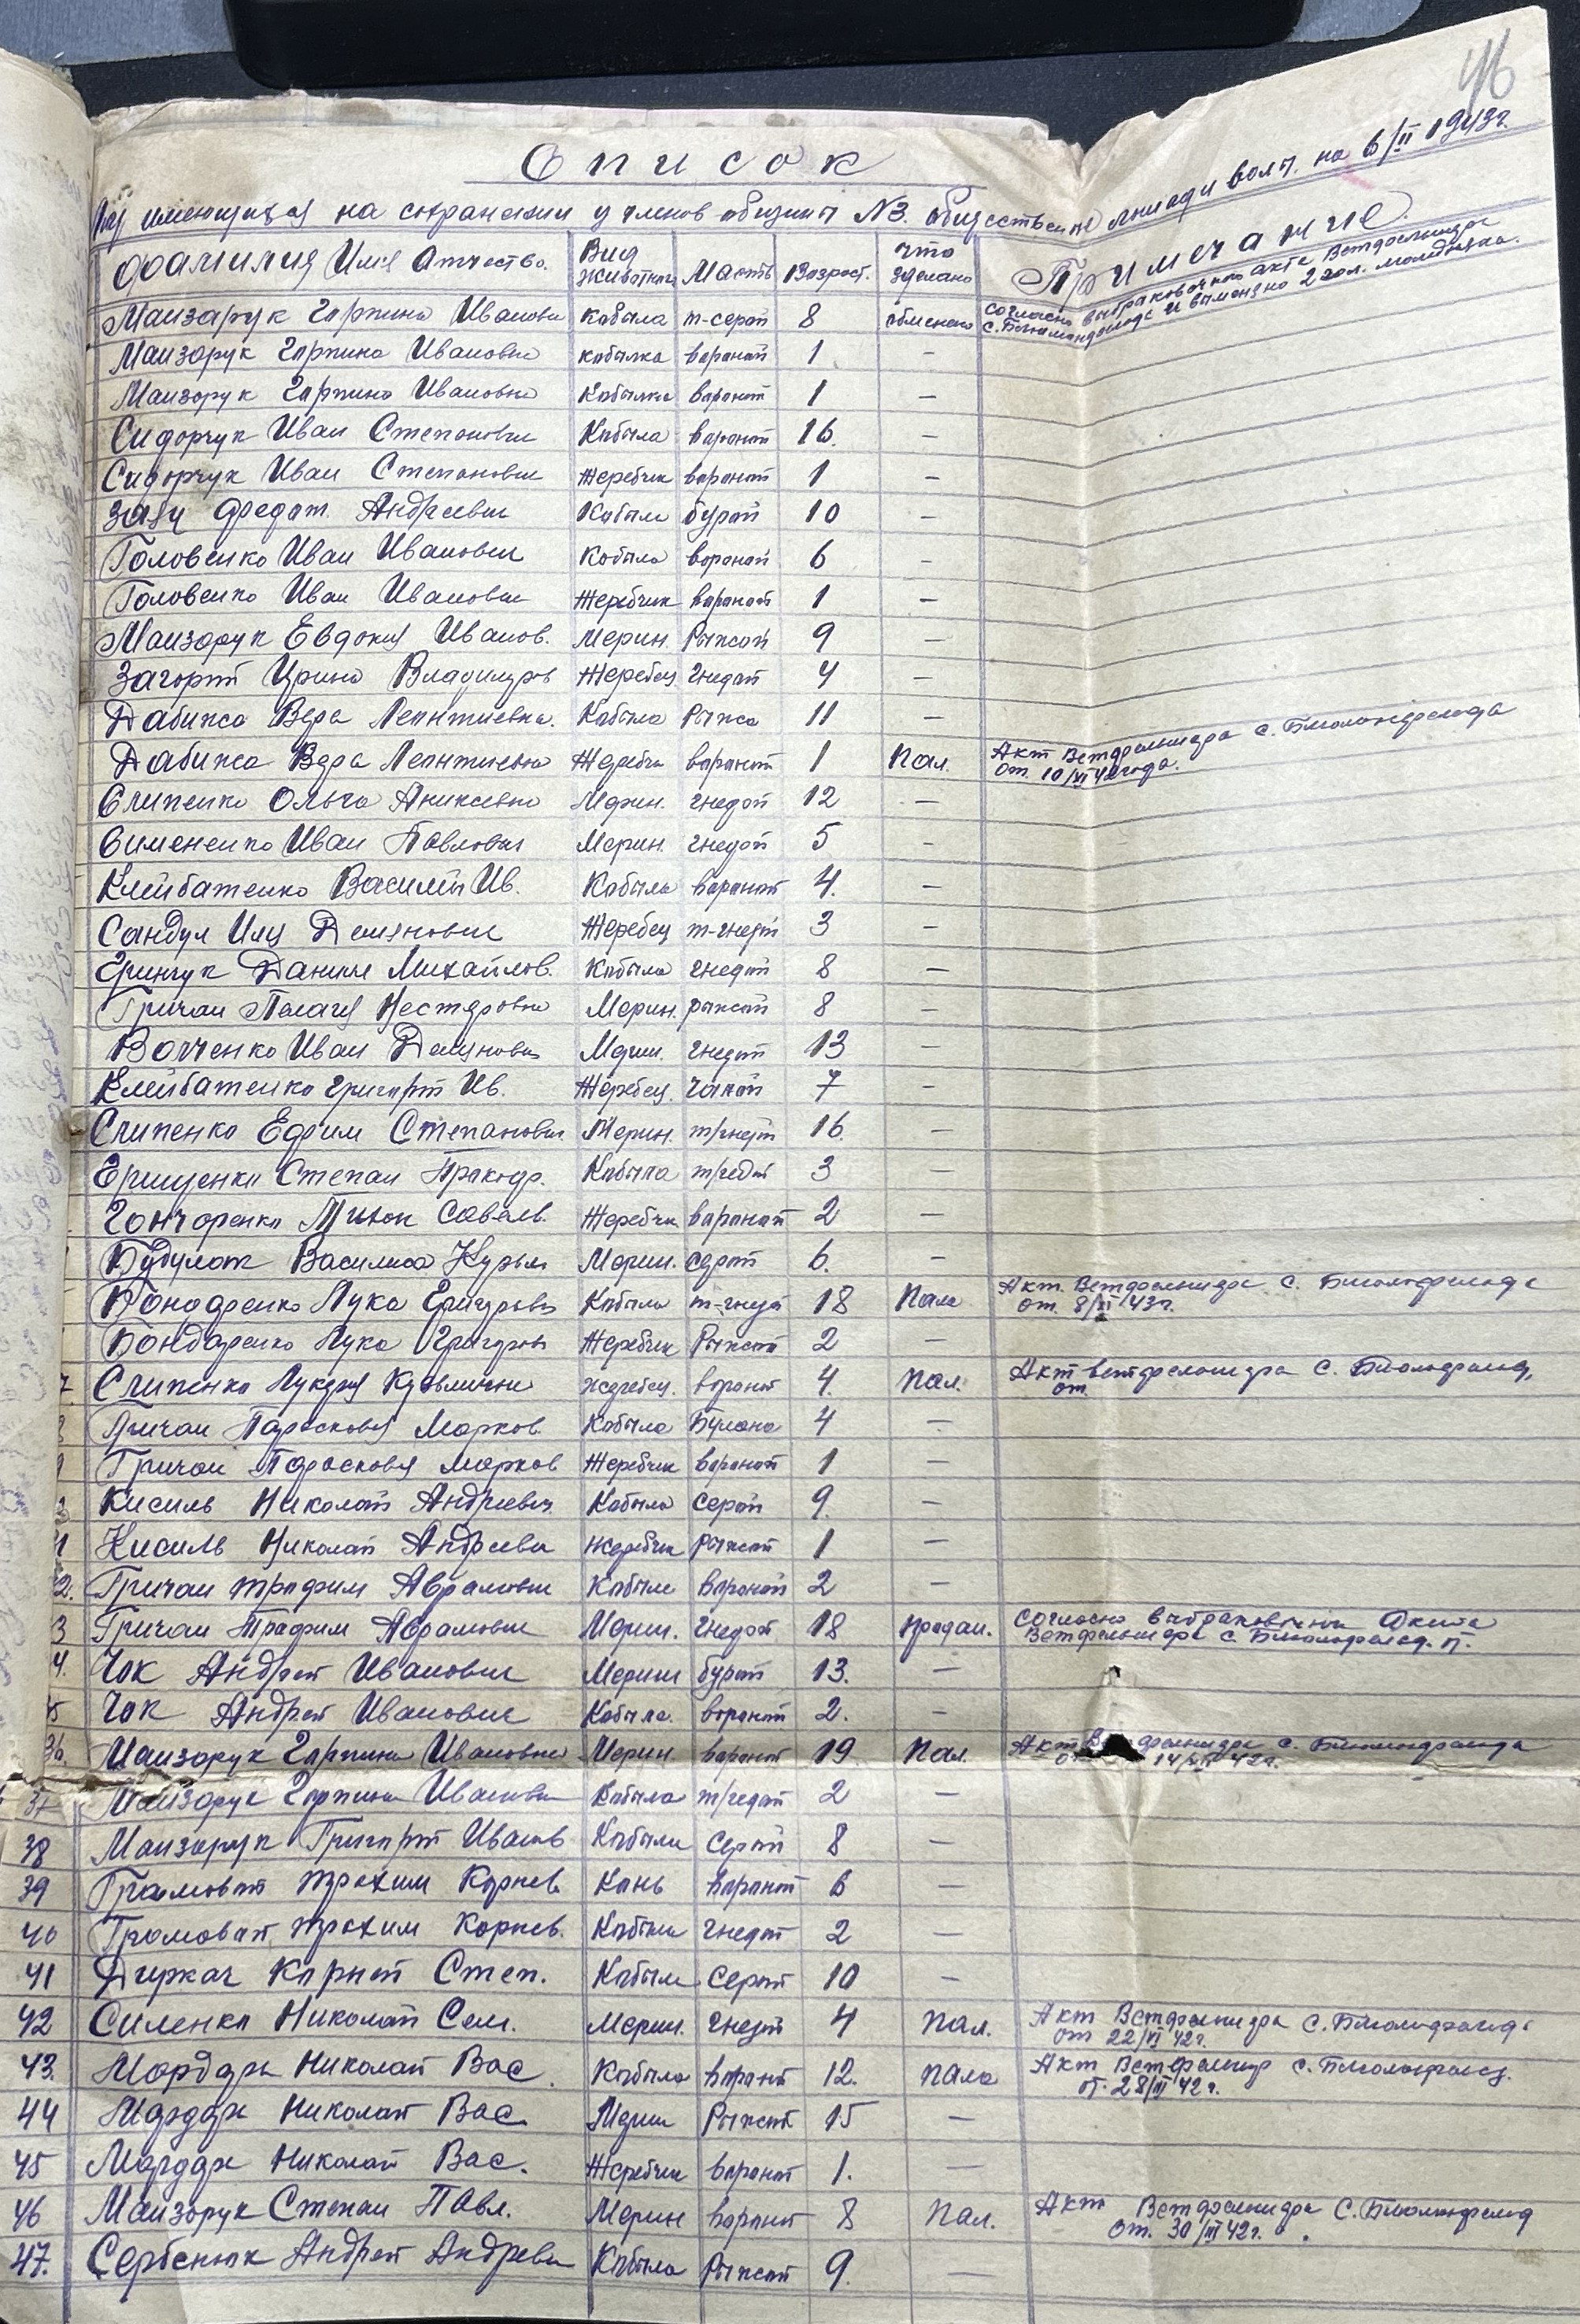 46
Список
имеющихся на сохранении у членов общины №3. общественные лошади волт. на 6/II 1943г.
Фамилия Имя Отчество. Вид животных Масть Возраст. что зделано Примечание.
Манзарук Гарпина Ивановн кобыла т-серой 8 обменено Согласно выбраковочной акта Ветфельшера
с. и выменяно 2 гол. молодняка.
Манзорук Гарпина Ивановн кобылка вараной 1 —
Манзорук Гарпина Ивановн Кобылка вараной 1 —
Сидорчук Иван Степонович Кобыла вараной 16. —
Сидорчук Иван Степанович Жеребчик вараной 1 —
Заяц Федот. Андреевич Кобыла бурой 10 —
Головенко Иван Иванович Кобыла вороной 6 —
Головенко Иван Иванович Жеребчик вараной 1 —
Манзорук Евдокия Иванов. Мерин. Рыжой 9 —
Загорой Ирина Владимиров Жеребец гнедой 4 —
Дабижа Вера Леонтиевна. Кобыла Рыжа 11 —
Дабижа Вера Леонтиевна Жеребч вараной 1 Пал. Акт Ветфельшера с.
от 10/XI 42 года.
Слипенко Ольга Мерин. гнедой 12 —
Симененко Иван Павлович Мерин. гнедой 5 —
Клейбатенко Василий Ив. Кобыла вараной 4. —
Сандул Илия Демянович Жеребец т-гнедой 3 —
Гринчук Данил Михайлов. Кобыла гнедой 8 —
Гричан Пелагия Нестеровна Мерин. рыжой 8 —
Волченко Иван Демянович Мерин. гнедой 13 —
Клейбатенко Григорий Ив. Жеребец. 7 —
Слипенко Ефрим Степанович Мерин. т/гнедой 16. —
Ерищенко Степан Прокофр. Кобыла т/гедой 3 —
Гончоренко Тихон Савель. Жеребчик вараной 2 —
Будулат Василиса Кузьм Мерин. серой 6. —
Бондаренко Лука Григоров Кобыла т-гнедой 18 Пала Акт. Ветфельшера с.
от. 8/ 43г.
Бондаренко Лука Григоров Жеребчик Рыжой 2 —
7 Слипенко Кузьминич жеребец. вороной 4. Пал. Акт ветфельшера с.
от
8 Гричан Парасковя Марков. Кобыла Булана 4 —
9 Гричан Парасковя Марков Жеребчик вараной 1 —
Кисиль Николай Андреевич. Кобыла серой 9. —
1 Кисиль Николай Андреевич Жеребчик рыжой 1 —
2. Гричан трафим Аврамович Кобыла вороной 2 —
3 Гричан Трафим Аврамович Мерин. гнедой 18 продан. Согласно выбраковочной Акта
Ветфельшера с.
4. Чок Андрей Иванович Мерин бурой 13. —
5 Чок Андрей Иванович Кобыла. вороной 2. —
36. Манзорук Гарпина Ивановна Мерин. вараной 19 Пал. Акт с.
14/ 42г.
37 Манзорук Гарпина Ивановн Кобыла т/гедой 2 —
38 Манзорук Григорий Иванов Кобыла серой 8 —
39 Громовой трохим Корнев. Конь вараной 6 —
40 Громовой трохим Корнев. Кобыла гнедой 2 —
41 Диркач Корней Степ. Кобыла серой 10 —
42 Силенко Николай Сем. Мерин. гнедой 4 Пал. Акт Ветфельшера с.
от 22/ 42г.
43. Мордарь Николай Вас. Кобыла вараной 12. Пала Акт Ветфельшер с.
от. 28/ 42г.
44 Мардарь Николай Вас. Мерин Рыжой 15 —
45 Мардарь Николай Вас. Жеребчик вараной 1. —
46 Манзорук Степан Павл. Мерин вараной 8 Пал. Акт Ветфельшера с.
от. 30/III 42г.
47. Сербенюк Андрей Андреевич Кобыла Рыжой 9. —